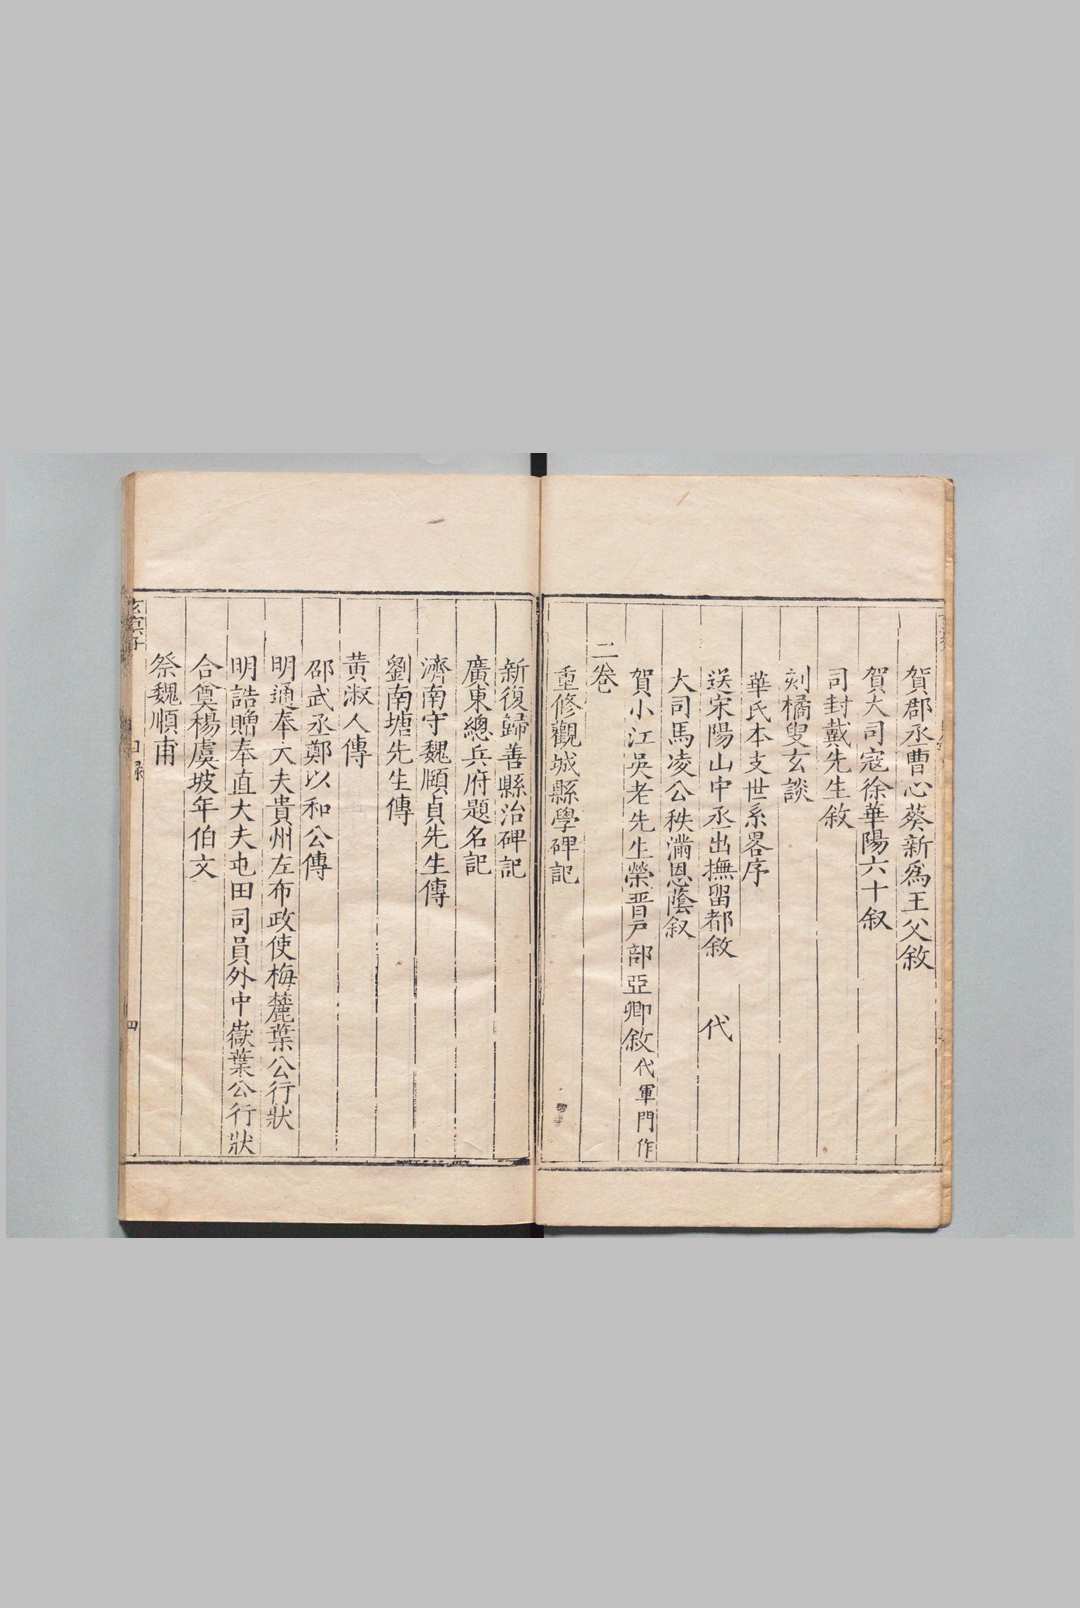 賀郡丞曹心葵新爲王父敘
賀大司寇徐華陽六十叙
司封戴先生敘
刻橘叟玄談
華氏本支世系畧序
送宋陽山中丞出撫留都敘 代
大司馬凌公秩滿恩蔭叙
賀小江吳老先生榮晋戸部亞卿敘代軍門作
二卷
重修觀城縣學碑記
新復歸善縣治碑記
廣東總兵府題名記
濟南守魏顒貞先生傳
劉南塘先生傳
黄淑人傳
邵武丞鄭以和公傳
明通奉大夫貴州左布政使梅麓葉公行狀
明誥贈奉直大夫屯田司員外中嶽葉公行狀
合奠楊虞坡年伯文
祭魏順甫
目錄
四